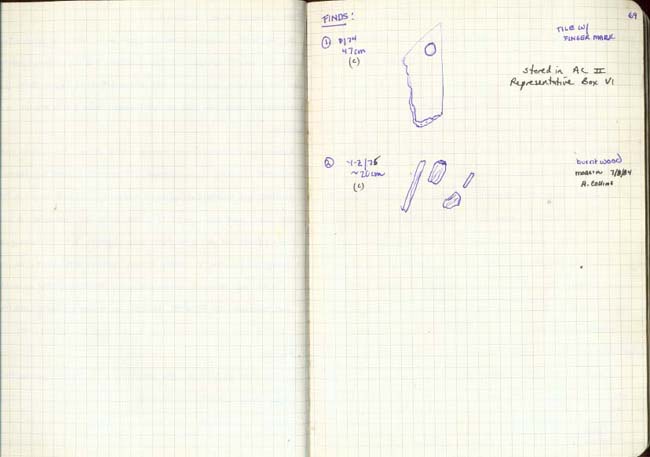 69
FINDS:
① 47cm
(c)
TILE W/
FINGER MARK
stored in AC II
Representative Box VI
② Y-Z/75
~26cm
(c)
burnt wood
7/8/84
A. Collins